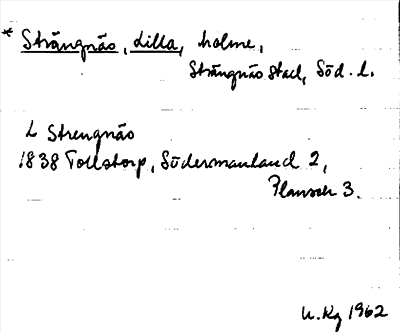 * Strängnäs, Lilla, holme,
Strängnäs stad, Söd. l.
L Strengnäs
1838 Tollstorp, Södermanland 2,
Plansch 3.
U.Kg 1962